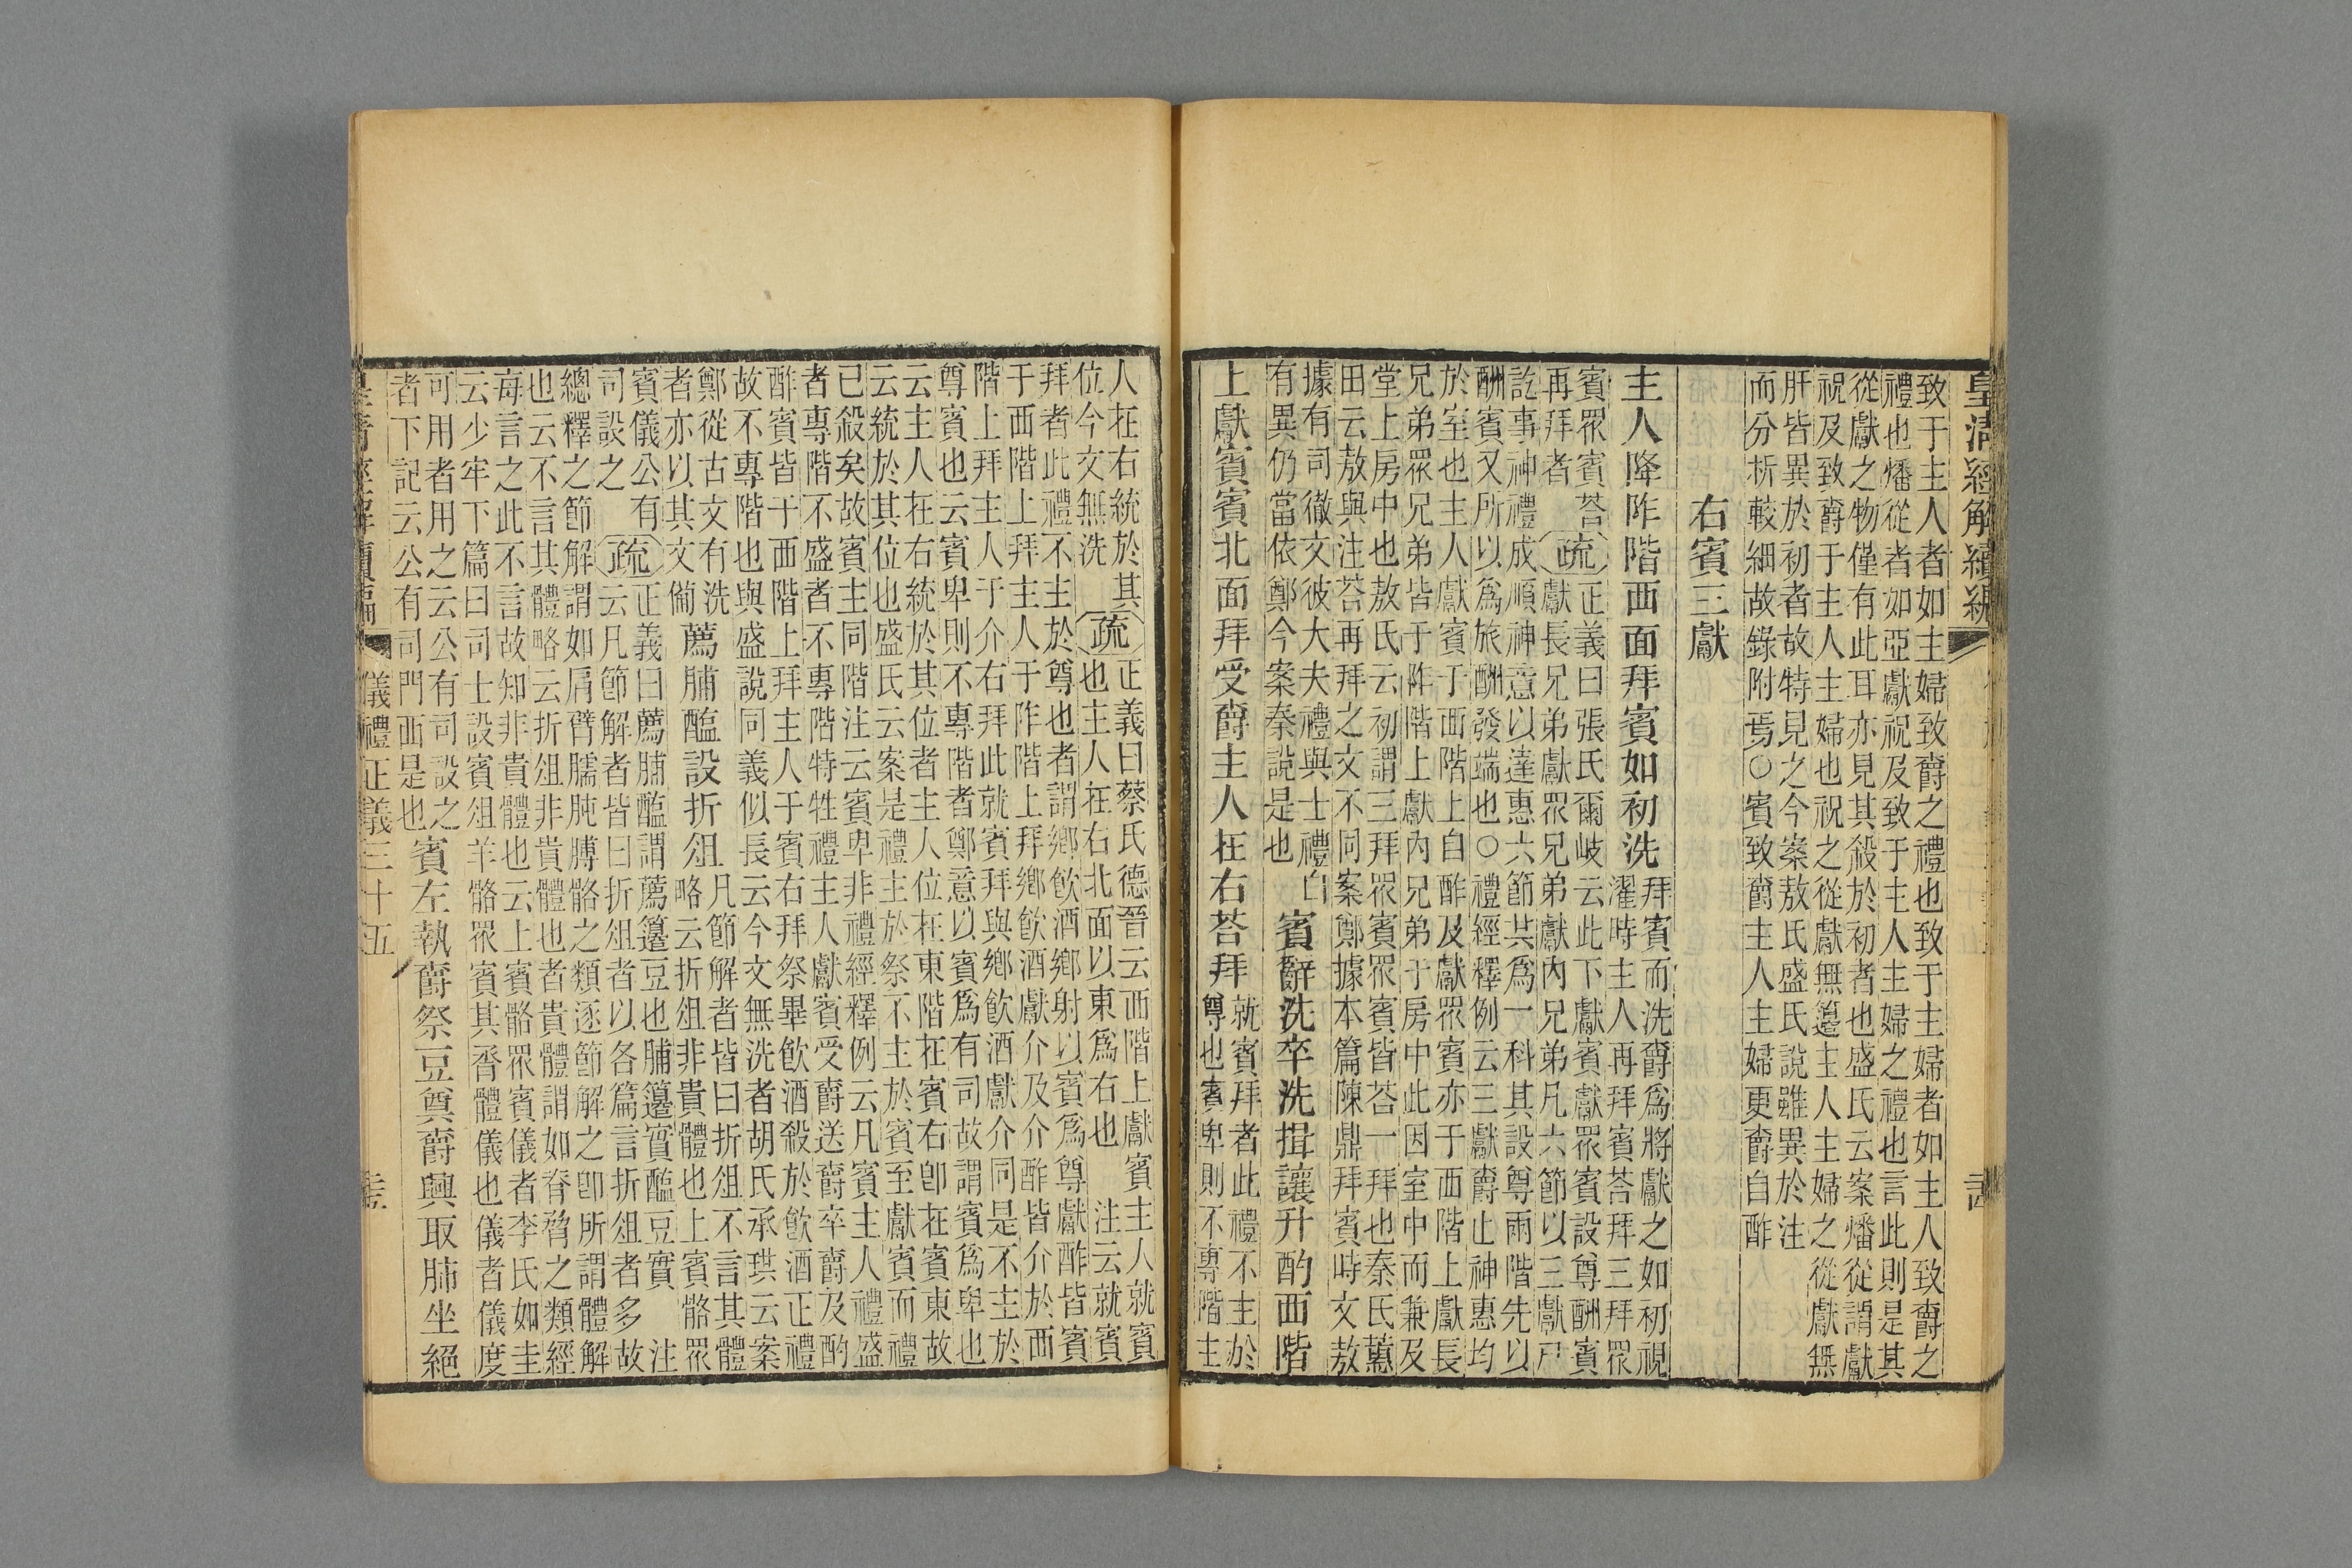 皇清經解續編
致于主人者如主婦致爵之禮也致于主婦者如主人致爵之
禮也燔從者如亞獻祝及致于主人主婦之禮也言此則是其
從獻之物僅有此耳亦見其殺於初者也盛氏云案燔從謂獻
祝及致爵于主人主婦也祝之從獻無籩主人主婦之從獻無
肝皆異於初者故特見之今案敖氏盛氏說雖異於注
而分析較細故錄附焉○賓致爵主人主婦更爵自酢
右賓三獻
主人降阼階西面拜賓如初洗
拜賓而洗爵爲將獻之如初視
濯時主人再拜賓荅拜三拜眾
賓眾賓荅
再拜者
疏
正義曰張氏爾岐云此下獻賓獻眾賓設尊酬賓
獻長兄弟獻眾兄弟獻內兄弟凡六節以三獻尸
訖事神禮成順神意以達惠六節共爲一科其設尊兩階先以
酬賓又所以爲旅酬發端也○禮經釋例云三獻爵止神惠均
於室也主人獻賓于西階上自酢及獻眾賓亦于西階上獻長
兄弟眾兄弟皆于阼階上獻內兄弟于房中此因室中而兼及
堂上房中也敖氏云初謂三拜眾賓眾賓皆荅一拜也秦氏蕙
田云敖與注荅再拜之文不同案鄭據本篇陳鼎拜賓時文敖
據有司徹文彼大夫禮與士禮自
有異仍當依鄭今案秦說是也
賓辭洗卒洗揖讓升酌西階
上獻賓賓北面拜受爵主人在右荅拜
就賓拜者此禮不主於
尊也賓卑則不專階主
人在右統於其
位今文無洗
疏
正義曰蔡氏德晉云西階上獻賓主人就賓
也主人在右北面以東爲右也 注云就賓
拜者此禮不主於尊也者謂鄉飲酒鄉射以賓爲尊獻酢皆賓
于西階上拜主人于阼階上拜鄉飲酒獻介及介酢皆介於西
階上拜主人于介右拜此就賓拜與鄉飲酒獻介同是不主於
尊賓也云賓卑則不專階者鄭意以賓爲有司故謂賓爲卑也
云主人在右統於其位者主人位在東階在賓右卽在賓東故
云統於其位也盛氏云案是禮主於祭不主於賓至獻賓而禮
已殺矣故賓主同階注云賓卑非禮經釋例云凡賓主人禮盛
者專階不盛者不專階特牲禮主人獻賓受爵送爵卒爵及酌
酢賓皆于西階上拜主人于賓右拜祭畢飲酒殺於飲酒正禮
故不專階也與盛說同義似長云今文無洗者胡氏承珙云案
鄭從古文有洗
者亦以其文備
薦脯醢設折俎
凡節解者皆曰折俎不言其體
略云折俎非貴體也上賓骼眾
賓儀公有
司設之
疏
正義曰薦脯醢謂薦籩豆也脯籩實醢豆實 注
云凡節解者皆曰折俎者以各篇言折俎者多故
總釋之節解謂如肩臂臑肫膊骼之類逐節解之卽所謂體解
也云不言其體略云折俎非貴體也者貴體謂如脊脅之類經
每言之此不言故知非貴體也云上賓骼眾賓儀者李氏如圭
云少牢下篇曰司士設賓俎羊骼眾賓其脀體儀也儀者儀度
可用者用之云公有司設之
者下記云公有司門西是也
賓左執爵祭豆奠爵興取肺坐絕
儀禮正義三十五